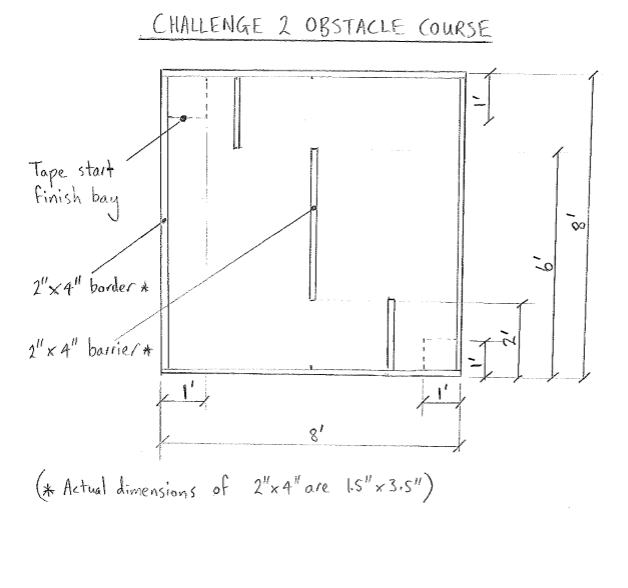 CHALLENGE 2 OBSTACLE COURSE
1'
Tape start
finish bay
8'
6'
2"x4" border *
2'
2"x4" barrier *
1'
1'
1'
8'
(* Actual dimensions of 2"x4" are 1.5"x3.5")